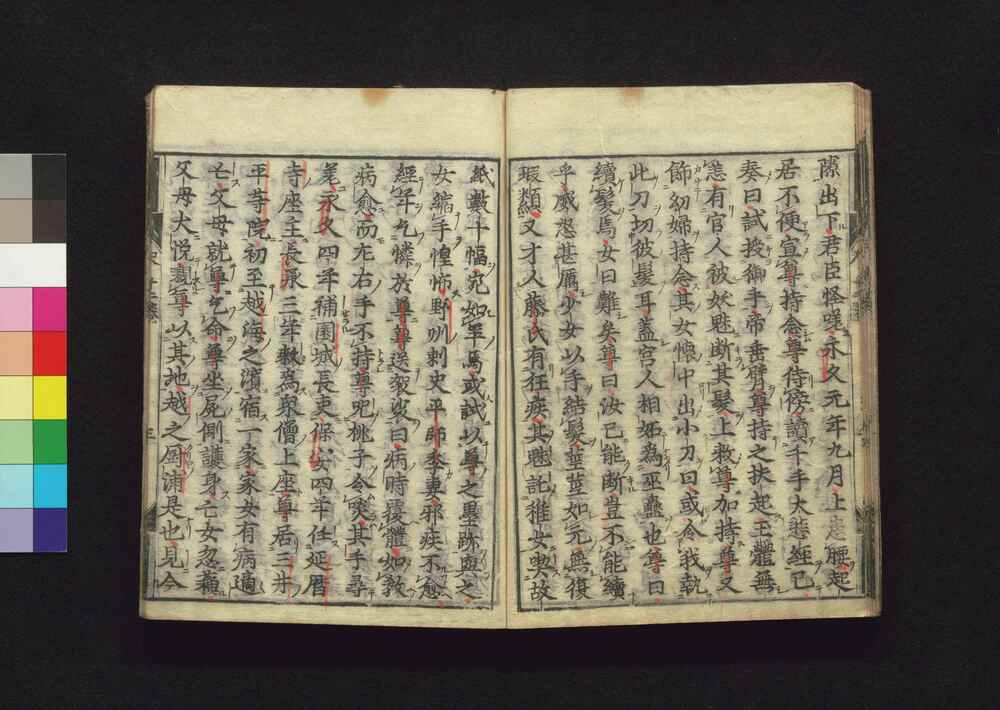 隙出下君臣怪嘆永久元年九月上患腰起
居不便宣尊持念尊侍傍讀千手大悲經已
奏曰試投御手帝垂臂尊持之扶起玉體無
恙有官人被妖魅断其髮上救尊加持尊又
飾幼婦持念其女懷中出小刀曰或令我執
此刀切彼髮耳蓋宮人相妬為巫蠱也尊曰
續髮焉女曰難矣尊曰汝已能断豈不能續
乎威怒甚厲少女以手結髮莖莖如元無復
瑕纇又才人藤氏有狂疾其魅託稚女喫故
紙數十幅宛如羊馬或試以尊之墨跡與之
女縮手惶怖野州刺史平師季妻邪疾不愈
經年乞憐於尊尊送袈裟曰病時覆體如教
病愈而左右手不持尊呪桃子令喫其手尋
差永久四年補園城長吏保安四年任延暦
寺座主長承三年敕為衆僧上座尊居三井
平等院初至越海之濱宿一家家女有病適
亡父母就尊乞命尊坐屍側護身亡女忽蘇
父母大悦
尊以其地越之厨浦是也見今